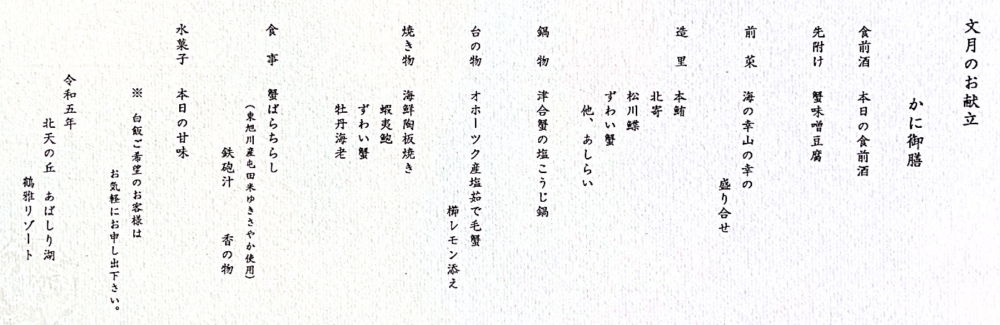 文月のお献立
かに御膳
食前酒 本日の食前酒
先附け 蟹味噌豆腐
前菜 海の幸山の幸の
盛り合せ
造里 本鮪
北寄
松川鰈
ずわい蟹
他、あしらい
鍋物 津合蟹の塩こうじ鍋
台の物 オホーツク産塩茹で毛蟹
櫛レモン添え
焼き物 海鮮陶板焼き
蝦夷鮑
ずわい蟹
牡丹海老
食事 蟹ばらちらし
(東旭川産屯田米ゆきさやか使用)
鉄砲汁 香の物
水菓子 本日の甘味
※ 白飯ご希望のお客様は
お気軽にお申し出下さい。
令和五年
北天の丘 あばしり湖
鶴雅リゾート